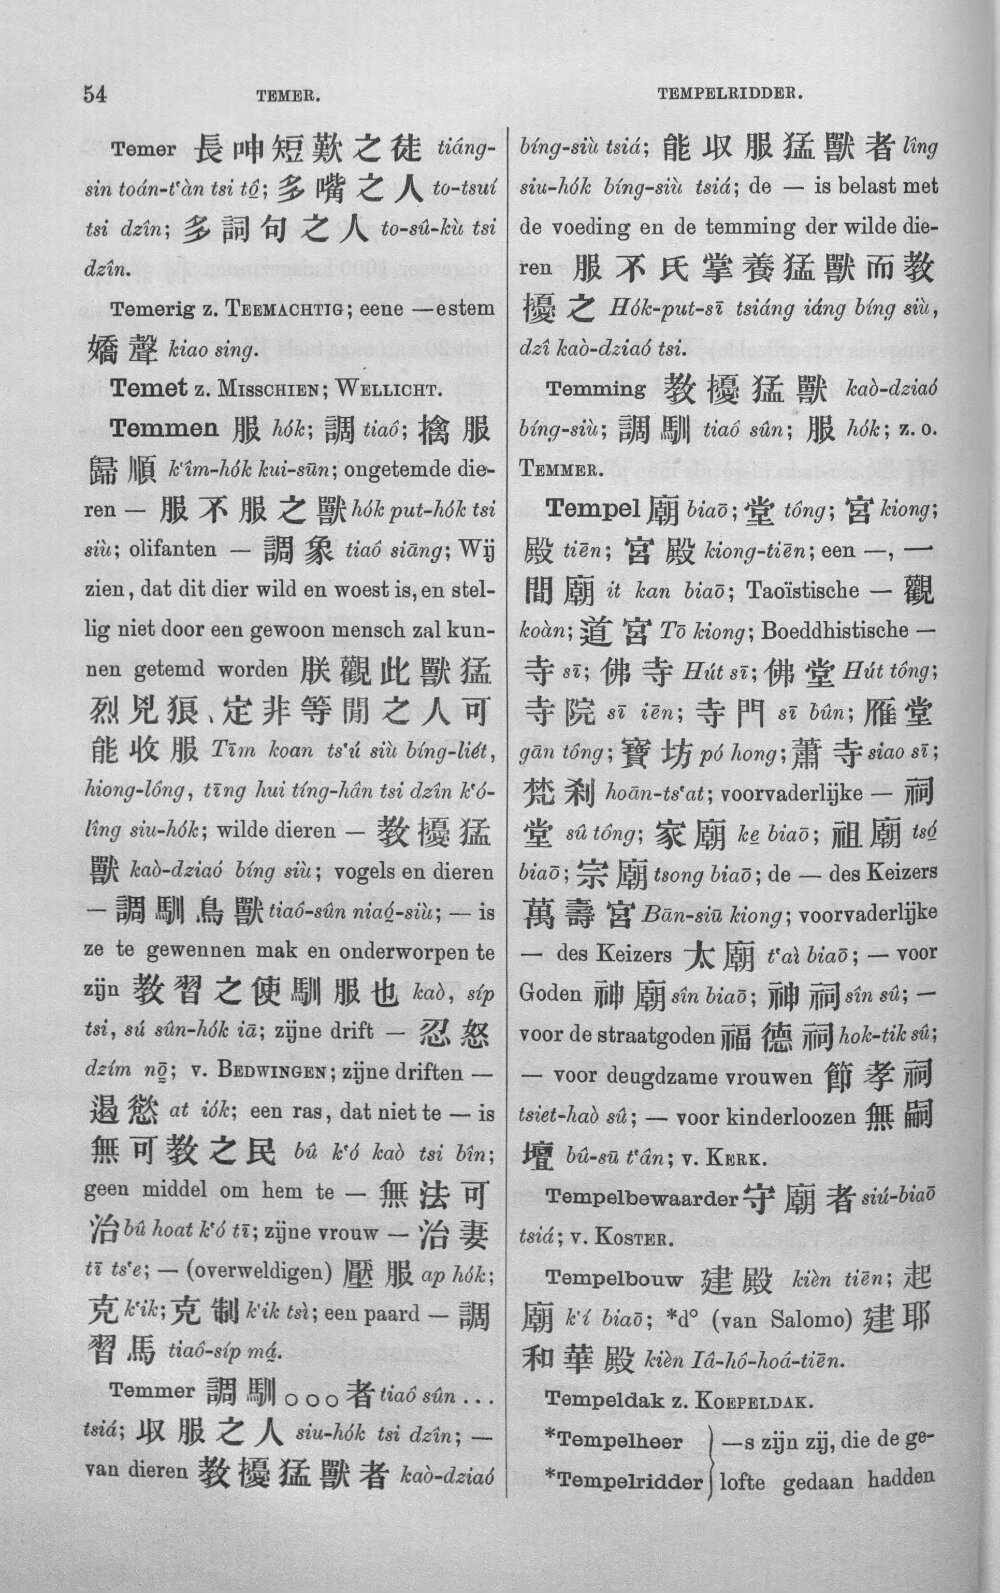 54
TEMER.
TEMPELRIDDER.
Temer 長呻短歎之徒 tiáng-
sin toán-t‘àn tsi tô; 多嘴之人 to-tsuí
tsi dzîn; 多詞句之人 to-sû-kù tsi
dzîn.
Temerig z. TEEMACHTIG; eene —estem
嬌聲 kiao sing.
Temet z. MISSCHIEN; WELLICHT.
Temmen 服 hók; 調 tiaô; 擒服
歸順 k‘îm-hók kui-sūn; ongetemde die-
ren — 服不服之獸 hók put-hók tsi
siù; olifanten — 調象 tiaô siāng; Wij
zien, dat dit dier wild en woest is, en stel-
lig niet door een gewoon mensch zal kun-
nen getemd worden 朕觀此獸猛
烈兇狠、定非等閒之人可
能收服 Tīm koan ts‘ú siù bíng-liét,
hiong-lông, tīng hui tíng-hân tsi dzîn k‘ó-
lîng siu-hók; wilde dieren — 教擾猛
獸 kaò-dziaó bíng siù; vogels en dieren
— 調馴鳥獸 tiaô-sûn niaó-siù; — is
ze te gewennen mak en onderworpen te
zijn 教習之使馴服也 kaò, síp
tsi, sú sûn-hók iā; zijne drift — 忍怒
dzím nō; v. BEDWINGEN; zijne driften —
遏慾 at iók; een ras, dat niet te — is
無可教之民 bû k‘ó kaò tsi bîn;
geen middel om hem te — 無法可
治 bû hoat k‘ó tī; zijne vrouw — 治妻
tī ts‘e; — (overweldigen) 壓服 ap hók;
克 k‘ik; 克制 k‘ik tsì; een paard — 調
習馬 tiaô-síp má.
Temmer 調馴○○○者 tiaô sûn ...
tsiá; 收服之人 siu-hók tsi dzîn; —
van dieren 教擾猛獸者 kaò-dziaó
bíng-siù tsiá; 能收服猛獸者 lîng
siu-hók bíng-siù tsiá; de — is belast met
de voeding en de temming der wilde die-
ren 服不氏掌養猛獸而教
擾之 Hók-put-sī tsiáng iáng bíng siù,
dzî kaò-dziaó tsi.
Temming 教擾猛獸 kaò-dziaó
bíng-siù; 調馴 tiaô sûn; 服 hók; z. o.
TEMMER.
Tempel 廟 biaō; 堂 tông; 宮 kiong;
殿 tiēn; 宮殿 kiong-tiēn; een —, 一
間廟 it kan biaō; Taoïstische — 觀
koàn; 道宮 Tō kiong; Boeddhistische —
寺 sī; 佛寺 Hút sī; 佛堂 Hút tông;
寺院 sī iēn; 寺門 sī bûn; 雁堂
gān tông; 寶坊 pó hong; 蕭寺 siao sī;
梵刹 hoān-ts‘at; voorvaderlijke — 祠
堂 sû tông; 家廟 ke biaō; 祖廟 tsó
biaō; 宗廟 tsong biaō; de — des Keizers
萬壽宮 Bān-siū kiong; voorvaderlijke
— des Keizers 太廟 t‘aì biaō; — voor
Goden 神廟 sîn biaō; 神祠 sîn sû; —
voor de straatgoden 福德祠 hok-tik sû;
— voor deugdzame vrouwen 節孝祠
tsiet-haò sû; — voor kinderloozen 無嗣
壇 bû-sū t‘ân; v. KERK.
Tempelbewaarder 守廟者 siú-biaō
tsiá; v. KOSTER.
Tempelbouw 建殿 kièn tiēn; 起
廟 k‘í biaō; *d° (van Salomo) 建耶
和華殿 kièn Iâ-hô-hoâ-tiēn.
Tempeldak z. KOEPELDAK.
*Tempelheer } —s zijn zij, die de ge-
*Tempelridder } lofte gedaan hadden